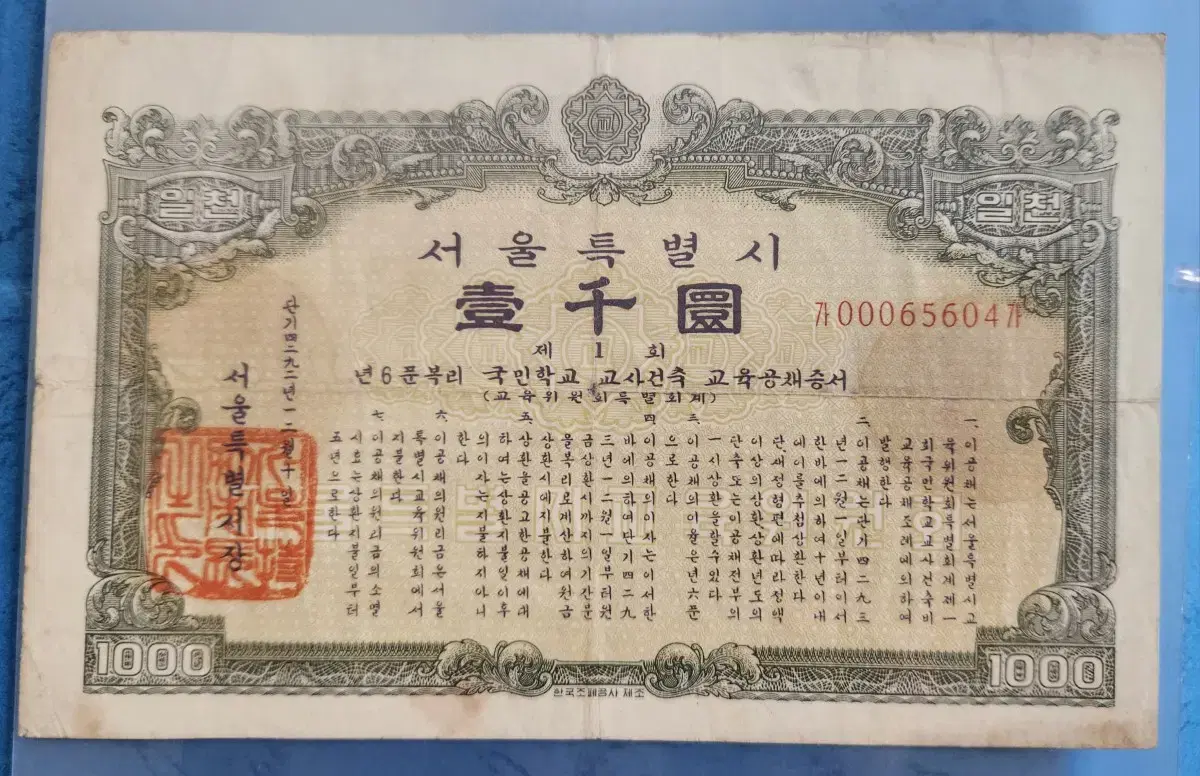 일천
일천
서울특별시
壹千圜
가00065604가
제1회
년6푼복리 국민학교 교사건축 교육공채증서
(교육위원회특별회계)
一、이공채는서울특별시교
육위원회특별회계제一
회국민학교교사건축비
교육공채조례에의하여
발행한다
二、이공채는단기四二九三
년一二월一일부터이서
한바에의하여十년이내
에이를추첨상환한다
단재정형편에따라정액
이상의상환상환년도의
단축또는이공채전부의
一시상환을할수있다
三、이공채의이율은년六푼
으로한다
四、이공채의이자는이서한
바에의하여단기四二九
三년一二월一일부터원
금상환시까지의기간분
을복리로계산하여원금
상환시에지불한다
五、상환을공고한공채에대
하여는상환지불일이후
의이자는지불하지아니
한다
六、이공채의원리금은서울
특별시교육위원회에서
지불한다
七、이공채의원리금의소멸
시효는상환지불일부터
五년으로한다
단기四二九二년一二월十일
서울특별시장
1000
1000
한국조폐공사 제조